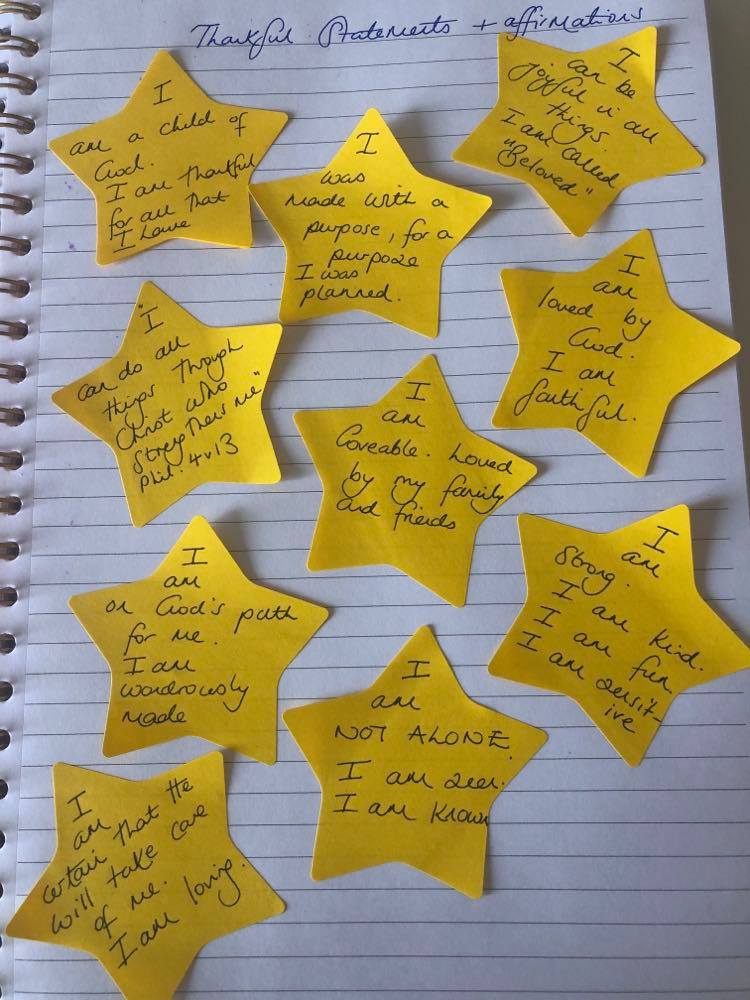 Thankful Statements + affirmations
I
am a child of
God.
I am thankful
for all that
I have
I
was
made with a
purpose, for a
purpose
I was
planned.
I
can be
joyful in all
things.
I am called
"Beloved"
"I
can do all
things through
Christ who
strengthens me"
phil. 4v13
I
am
loveable. Loved
by my family
and friends
I
am
loved by
God.
I am
faithful.
I
am
on God's path
for me.
I am
wondrously
made
I
am
NOT ALONE.
I am seen.
I am known
I
am
Strong.
I am kind.
I am fun
I am sensit-
ive
I
am
certain that He
will take care
of me.
I am loving.